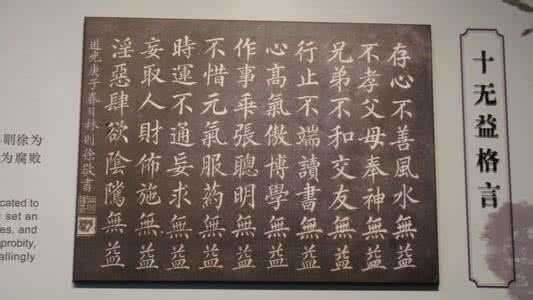 十无益格言
存心不善風水無益
不孝父母奉神無益
兄弟不和交友無益
行止不端讀書無益
心髙氣傲博學無益
作事乖張聰明無益
不惜元氣服葯無益
時運不通妄求無益
妄取人財佈施無益
淫惡肆欲陰騭無益
道光庚子春日林則徐敬書
则徐为
为腐败
cated to
set an
es, and
probity,
allingly